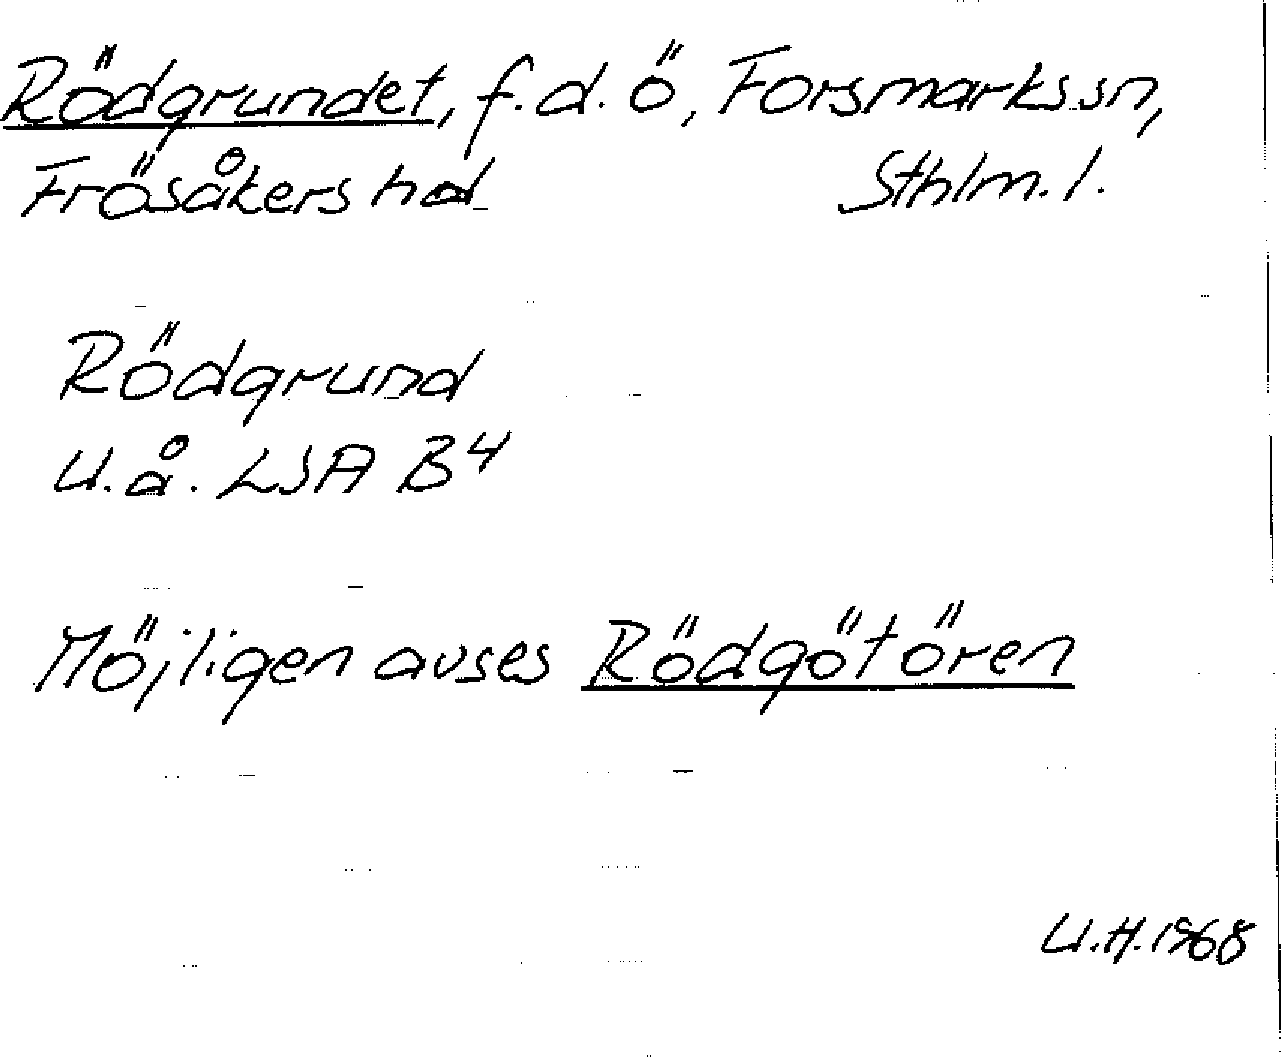 Rödgrundet, f.d. ö, Forsmarks sn,
Frösåkers hd Sthlm. l.
Rödgrund
U.å. LSA B4
Möjligen avses Rödgötören
U.H. 1968